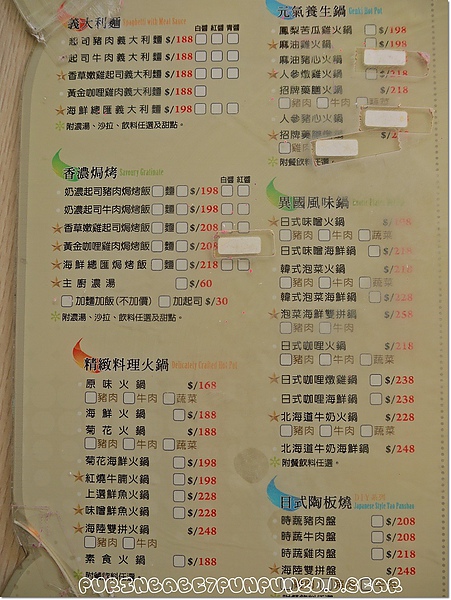 義大利麵 Spaghetti with Meat Sauce
白醬 紅醬 青醬
起司豬肉義大利麵 $/188
起司牛肉義大利麵 $/188
香草嫩雞起司義大利麵 $/188
黃金咖哩雞肉義大利麵 $/198
海鮮總匯義大利麵 $/188
附濃湯、沙拉、飲料任選及甜點。
香濃焗烤 Savory Gratinate
白醬 紅醬
奶濃起司豬肉焗烤飯 麵 $/198
奶濃起司牛肉焗烤飯 麵 $/198
香草嫩雞起司焗烤飯 麵 $/208
黃金咖哩雞肉焗烤飯 麵 $/208
海鮮總匯焗烤飯 麵 $/218
主廚濃湯 $/60
加麵加飯(不加價) 加起司 $/30
附濃湯、沙拉、飲料任選及甜點。
精緻料理火鍋 Delicately Cooked Hot Pot
原味火鍋 $/168
豬肉 牛肉 蔬菜
海鮮火鍋 $/188
菊花火鍋 $/188
豬肉 牛肉
菊花海鮮火鍋 $/198
紅燒牛腩火鍋 $/198
上選鮮魚火鍋 $/228
味噌鮮魚火鍋 $/228
海陸雙拼火鍋 $/248
豬肉 牛肉
素食火鍋 $/188
附餐飲料任選。
元氣養生鍋 Genki Hot Pot
鳳梨苦瓜雞火鍋 $/198
麻油雞火鍋 $/198
麻油豬心火鍋
人參燉雞火鍋 $/218
招牌藥膳火鍋 $/218
豬肉 牛肉
人參豬心火鍋
招牌藥膳
附餐飲料任選。
異國風味鍋
日式味噌火鍋 $/198
豬肉 牛肉 蔬菜
日式味噌海鮮鍋 $/218
韓式泡菜火鍋 $/218
豬肉 牛肉
韓式泡菜海鮮鍋 $/228
泡菜海鮮雙拼鍋 $/258
豬肉 牛肉
日式咖哩火鍋 $/218
豬肉 牛肉 蔬菜
日式咖哩燉雞鍋 $/238
日式咖哩海鮮鍋 $/238
北海道牛奶火鍋 $/228
豬肉 牛肉 蔬菜
北海道牛奶海鮮鍋 $/248
附餐飲料任選。
日式陶板燒 Japanese Style Tao Panshao
時蔬豬肉盤 $/208
時蔬牛肉盤 $/208
時蔬雞肉盤 $/218
海陸雙拼盤 $/248